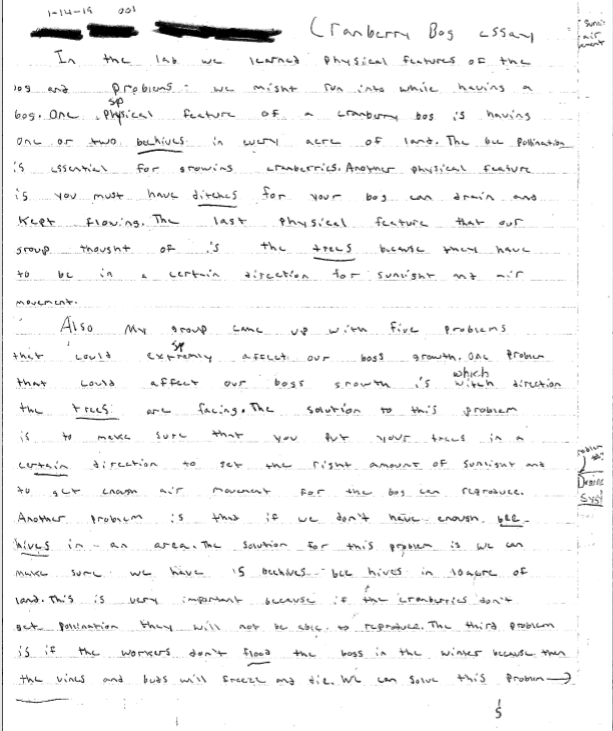 1-14-19 001
Cranberry Bog essay
In the lab we learned physical features of the
bog and problems we might run into while having a
bog. One sp physical feature of a cranberry bog is having
one or two beehives in every acre of land. The bee Pollination
is essential for growing cranberries. Another physical feature
is you must have ditches for your bog can drain and
kept flowing. The last physical feature that our
group thought of is the trees because they have
to be in a certain direction for sunlight and air
movement.
Also My group came up with five problems
that could sp extremly affect our bogs growth. One Problem
that could affect our bogs growth is which witch direction
the trees are facing. The solution to this problem
is to make sure that you Put your trees in a
certain direction to get the right amount of sunlight and
to get enough air movement for the bog can reproduce.
Another Problem is that if we don't have enough bee-
hives in an area. The solution for this problem is we can
make sure we have 15 beehives bee hives in 10 acre of
land. This is very important because if the cranberries don't
get Pollination they will not be able to reproduce. The third problem
is if the workers don't flood the bogs in the winter because then
the vines and buds will freeze and die. We can solve this Problem →